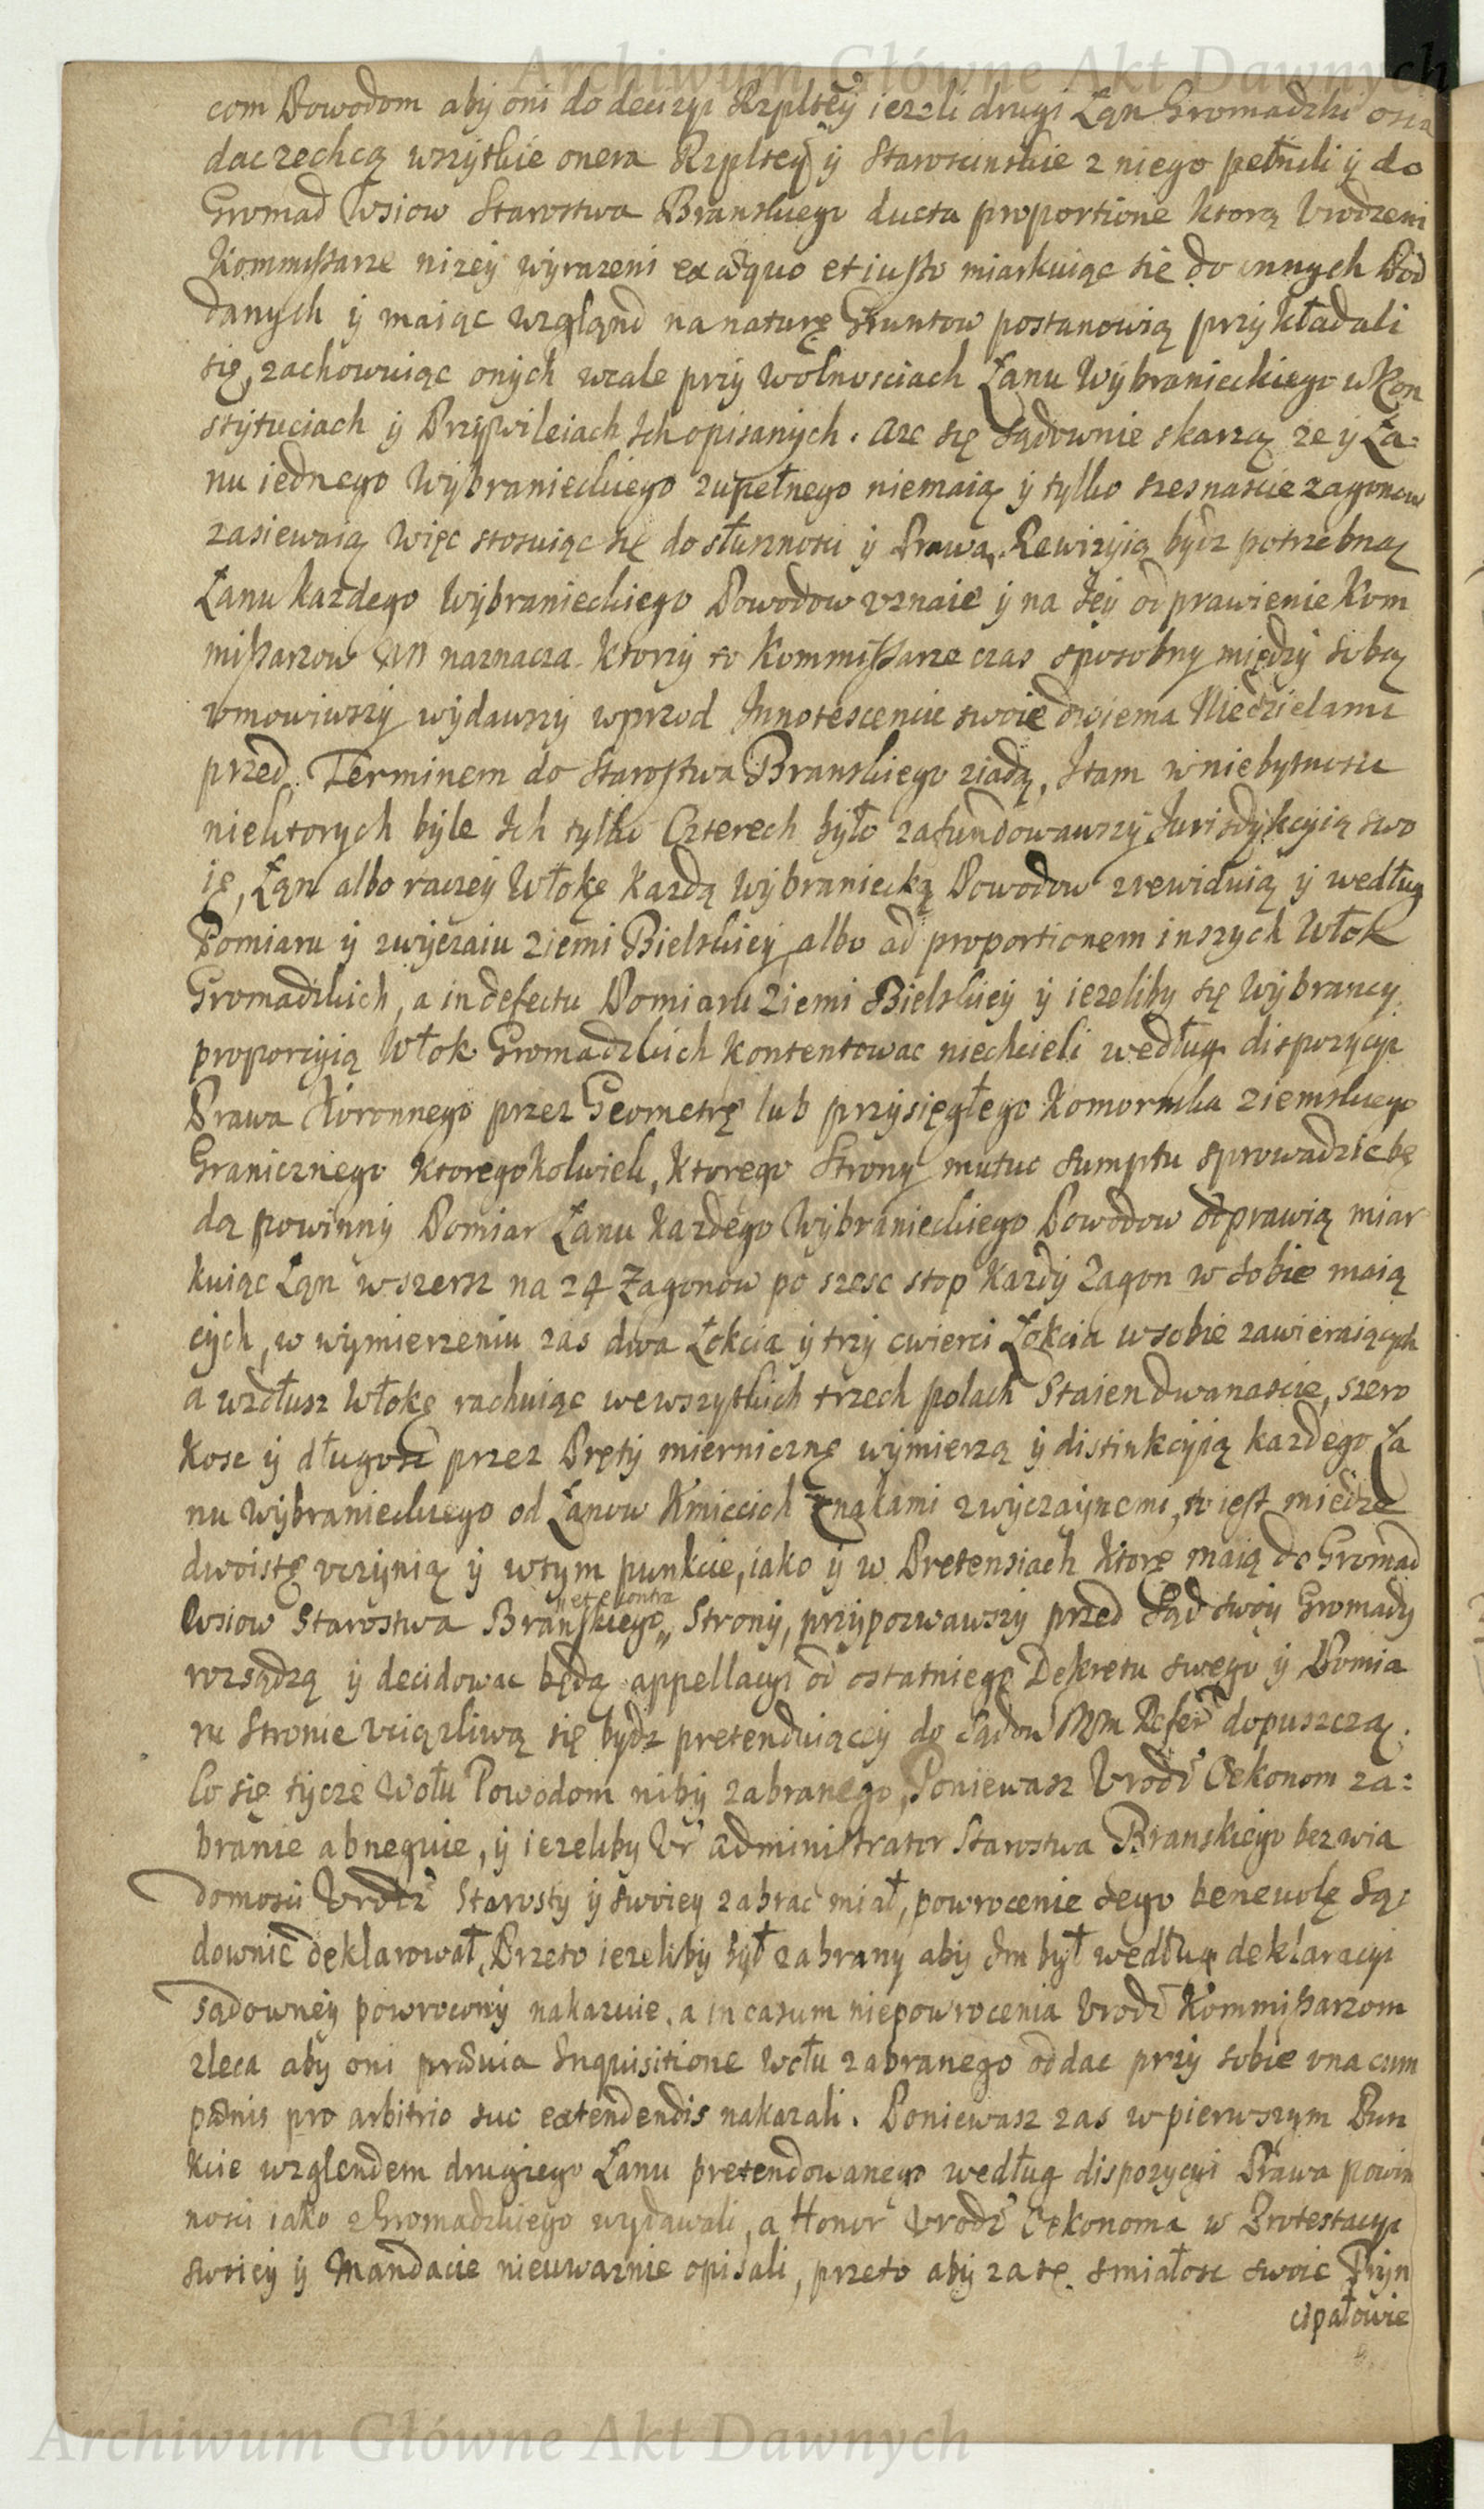 Archiwum Główne Akt Dawnych
com Powodom aby oni do decizyi Rzpltey iezeli drugi Łąn Gromadzki osia
dac zechcą wszytkie onera Rzpltey y Staroscinskie z niego pełnili y do
Gromad Wsiow Starostwa Branskiego ducta proportione ktorą Urodzeni
Kommissarze nizey wyrazeni ex æquo et iusto miarkuiąc się do innych Pod
danych y maiąc wzgląnd na naturę Gruntow postanowią przykładali
się, zachowuiąc onych wcale przy wolnosciach Łanu Wybranieckiego w Kon
stytuciach y Przywileiach Ich opisanych. Aze się sądownie skarzą ze y Ła:
nu iednego Wybranieckiego zupełnego niemaią y tylko szesnascie zagonow
zasiewaią więc stosuiąc się do słusznosci y Prawa, Rewizyią bydz potrzebną
Łanu kazdego Wybranieckiego Powodow uznaie y na Jey odprawienie Kom
missarzow NN naznacza. Ktorzy to Kommissarze czas sposobny między sobą
vmowiwszy wydawszy wprzod Innotescencie swoie dwiema Niedzielami
przed Terminem do Starostwa Branskiego ziadą, Itam w niebytnosci
niektorych byle Ich tylko Czterech było zafundowawszy Jurisdykcyią swo
ię, Łąn albo raczey Włokę kazdą Wybraniecką Powodow zrewiduią y według
Pomiaru y zwyczaiu Ziemi Bielskiey albo ad proportionem inszych Włok
Gromadzkich, a in defectu Pomiaru Ziemi Bielskiey y iezeliby się Wybrancy
proporcyią Włok Gromadzkich kontentowac niechcieli według dispozycyi
Prawa Koronnego przez Geometrę lub przysięgłego Komornika ziemskiego
Granicznego ktoregokolwiek, ktorego Strony mutuo sumptu sprowadzic bę
dą powinny Pomiar Łanu kazdego Wybranieckiego Powodow odprawią miar
kuiąc Łąn wszersz na 24 Zagonow po szesc stop kazdy Zagon w sobie maią
cych, w wymierzeniu zas dwa Łokcia y trzy cwierci Łokcia w sobie zawieraiących
a wzdłusz Włokę rachuiąc wewszytkich trzech polach Staien dwanascie, szero
kosc y długosc przez Pręty miernicznę wymierzą y distinkcyią kazdego Ła
nu Wybranieckiego od Łanow Kmiecich znakami zwyczaynemi, to iest miedze
dwoistę vczynią y wtym punkcie, iako y w Pretensiach ktorę maią do Gromad
Wsiow Starostwa Branskiego „et e contra„ Strony, przypozwawszy przed Sąd swoy Gromady
rozsądzą y decidowac będą appellacyi od ostatniego Dekretu swego y Pomia
ru Stronie vciązliwą się bydz pretenduiącey do Sądow Nm Refer dopuszczą.
Co się tycze Wołu Powodom niby zabranego, Poniewasz Urodz Oekonom za:
branie abneguie, y iezeliby Ur Administrator Starostwa Branskiego bez wia
domosci Urodz Starosty y swoiey zabrac miał, powrocenie Jego benevolę Są:
downie deklarował, Przeto iezeliby był zabrany aby Im był według deklaracyi
sądowney powrocony nakazuie, a in casum niepowrocenia Urodz Kommissarzom
zleca aby oni prævia Inquisitione Wołu zabranego oddac przy sobie vna cum
pænis pro arbitrio suo extendendis nakazali. Poniewasz zas w pierwszym Pun
kcie wzglendem drugiego Łanu pretendowanego według dispozycyi Prawa powin
nosci iako z Gromadzkiego wydawali, a Honor Urodz Oekonoma w Protestacyi
swoiey y Mandacie nieuwaznie opisali, przeto aby za tę smiałosc swoię Pryn
cypałowie
Archiwum Główne Akt Dawnych